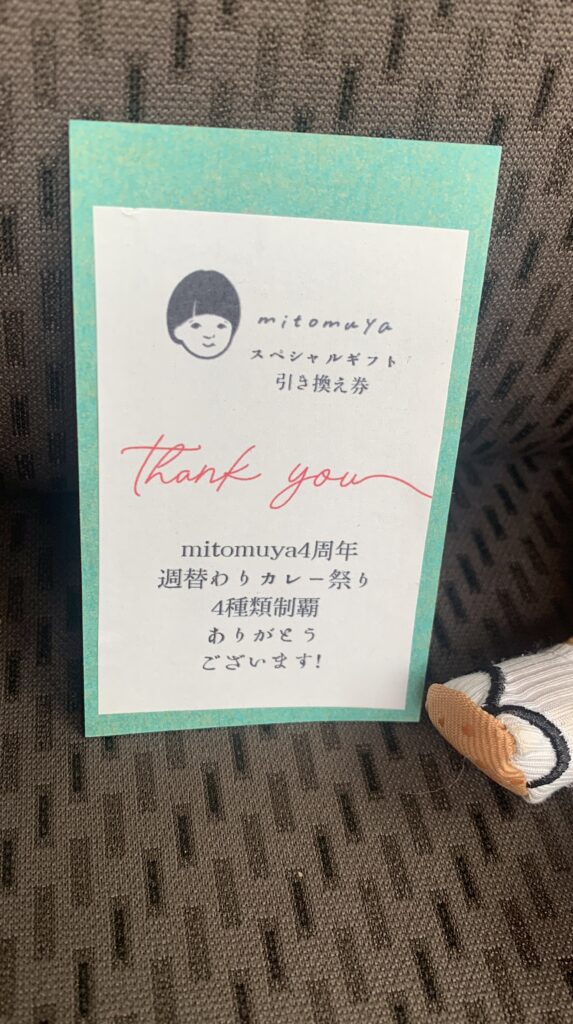 mitomuya
スペシャルギフト
引き換え券
thank you
mitomuya4周年
週替わりカレー祭り
4種類制覇
ありがとう
ございます!